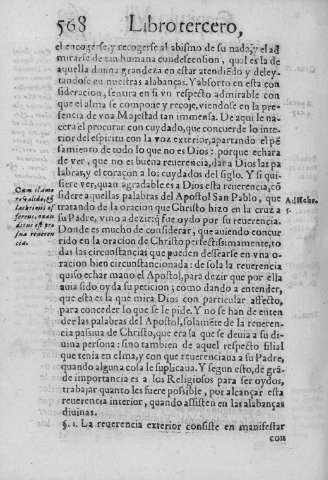 568 Libro tercero,
el encogerse, y recogerse al abismo de su nada, y el ad
mirarse de tan humana condescension, qual es la de
aquella diuina grandeza en estar atendiẽdo y deley-
tandose en nuestras alabanças. Y absorto en esta con
sideracion, sentira en si vn respecto admirable con
que el alma se compone y recoje, viendose en la pre-
sencia de vna Majestad tan immensa. De aqui le na-
cera el procurar con cuydado, que concuerde lo inte-
rior del espiritu con la voz exterior, apartando el pẽ
samiento de todo lo que no es Dios: porque echara
de ver, que no es buena reuerencia, dar a Dios las pa
labras, y el coraçon a los cuydados del siglo. Y si qui-
siere ver, quan agradable es a Dios esta reuerencia, cõ
sidere aquellas palabras del Apostol San Pablo, que
tratando de la oracion que Christo hizo en la cruz a
su Padre, vino a dezir, q̃ fue oydo por su reuerencia.
Donde es mucho de considerar, que auiendo concur
rido en la oracion de Christo perfectissimamente, to
das las circunstancias que pueden dessearse en vna o-
racion bien circunstancionada: de sola la reuerencia
quiso echar mano el Apostol, para dezir que por ella
auia sido oyda su peticion; como dando a entender,
que esta es la que mira Dios con particular affecto,
para conceder lo que se le pide. Y no se han de enten
der las palabras del Apostol, solamẽte de la reueren-
cia passiua de Christo, que era la que se deuia a su di-
uina persona; sino tambien de aquel respecto filial
que tenia en el ma, y con que reuerenciaua a su Padre,
quando alguna cosa le suplicaua. Y segun esto, de grã-
de importancia es a los Religiosos para ser oydos,
trabajar quanto les fuere possible, por alcançar esta
reuerencia interior, quando assisten en las alabãças
diuinas.
§. 1. La reuerencia exterior consiste en manifestar
con
Cum clamo
re valido, &
lacrimis of
ferens, exau
ditus est pro
sua reueren
cia.
Ad Hebr.
5.